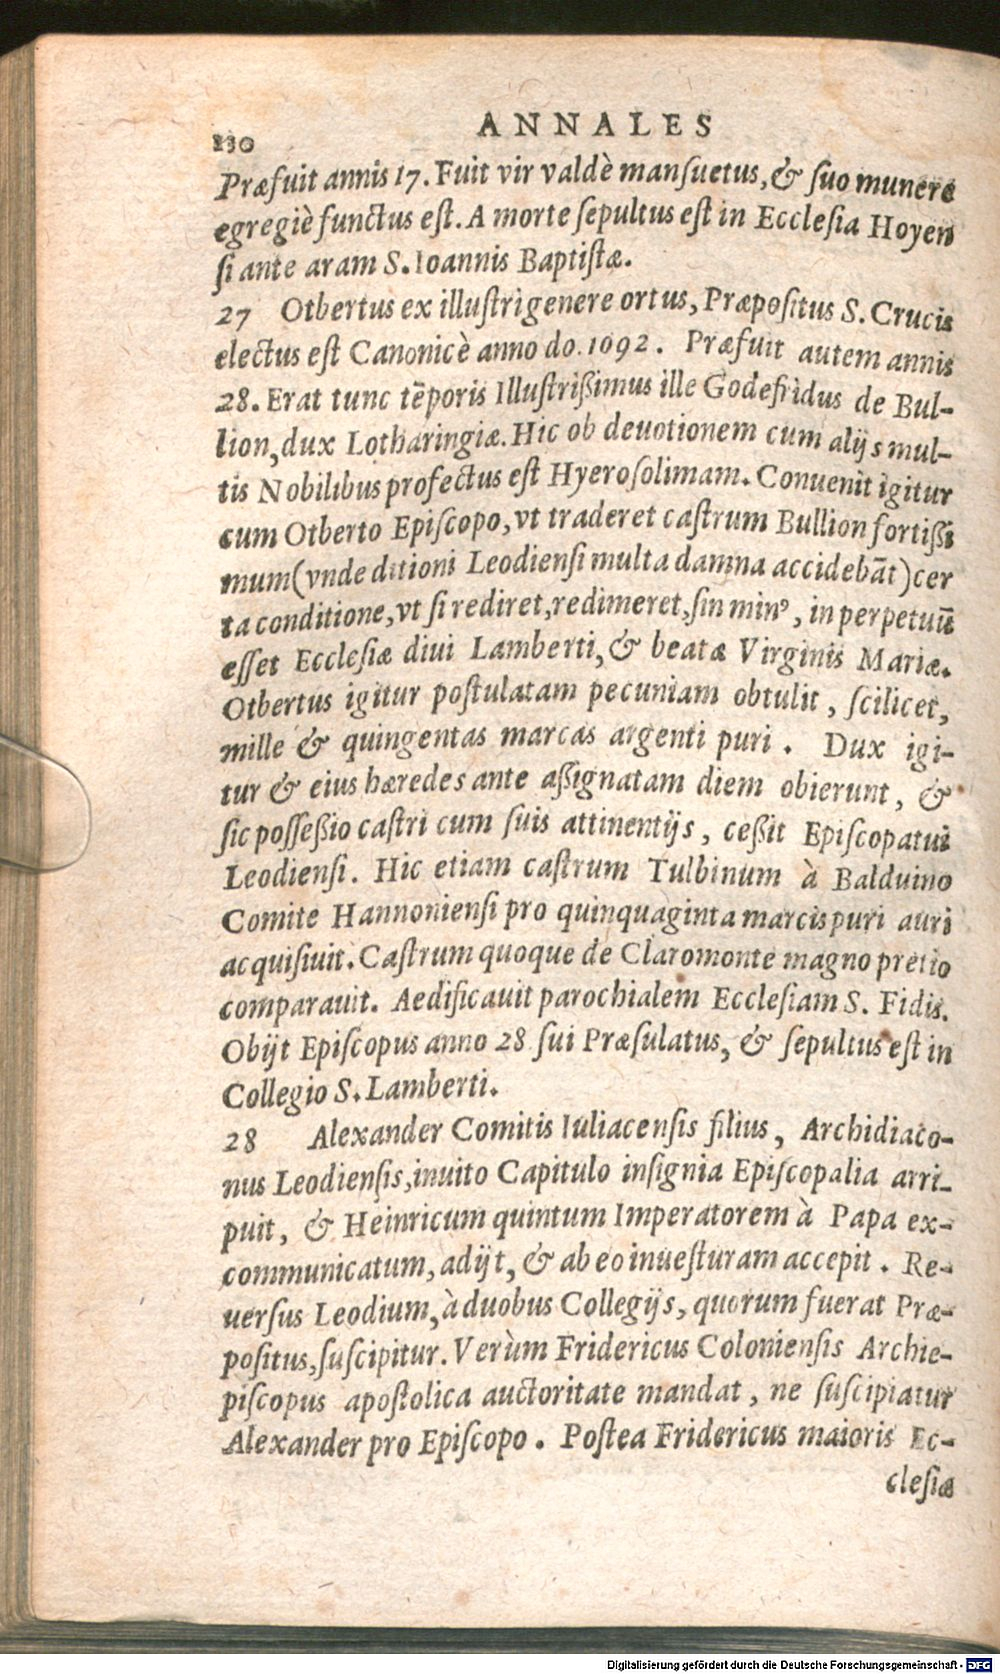 130
ANNALES
Præfuit annis 17. Fuit vir valdè manſuetus, & ſuo munere
egregiè functus eſt. A morte ſepultus eſt in Eccleſia Hoyen
ſi ante aram S. Ioannis Baptiſtæ.
27 Otbertus ex illuſtri genere ortus, Præpoſitus S. Crucis
electus eſt Canonicè anno do. 1092. Præfuit autem annis
28. Erat tunc tēporis Illuſtrißimus ille Godefridus de Bul-
lion, dux Lotharingiæ. Hic ob deuotionem cum alijs mul-
tis Nobilibus profectus eſt Hyeroſolimam. Convenit igitur
cum Otberto Epiſcopo, vt traderet caſtrum Bullion fortißi
mum (vnde ditioni Leodienſi multa damna accidebāt) cer
ta conditione, vt ſi rediret, redimeret, ſin minꝰ, in perpetuū
eſſet Eccleſiæ diui Lamberti, & beatæ Virginis Mariæ.
Otbertus igitur poſtulatam pecuniam obtulit, ſcilicet,
mille & quingentas marcas argenti puri. Dux igi-
tur & eius hæredes ante aßignatam diem obierunt, &
ſic poſſeßio caſtri cum ſuis attinentijs, ceßit Epiſcopatui
Leodienſi. Hic etiam caſtrum Tulbinum à Balduino
Comite Hannonienſi pro quinquaginta marcis puri auri
acquiſiuit. Caſtrum quoque de Claromonte magno pretio
comparauit. Aedificauit parochialem Eccleſiam S. Fidis.
Obijt Epiſcopus anno 28 ſui Præſulatus, & ſepultus eſt in
Collegio S. Lamberti.
28 Alexander Comitis Iuliacenſis filius, Archidiaco-
nus Leodienſis, inuito Capitulo inſignia Epiſcopalia arri-
puit, & Heinricum quintum Imperatorem à Papa ex-
communicatum, adijt, & ab eo inueſturam accepit. Re-
uerſus Leodium, à duobus Collegijs, quorum fuerat Præ-
poſitus, ſuſcipitur. Verùm Fridericus Colonienſis Archie-
piſcopus apoſtolica auctoritate mandat, ne ſuſcipiatur
Alexander pro Epiſcopo. Poſtea Fridericus maioris Ec-
cleſiæ
Digitalisierung gefördert durch die Deutsche Forschungsgemeinschaft - DFG